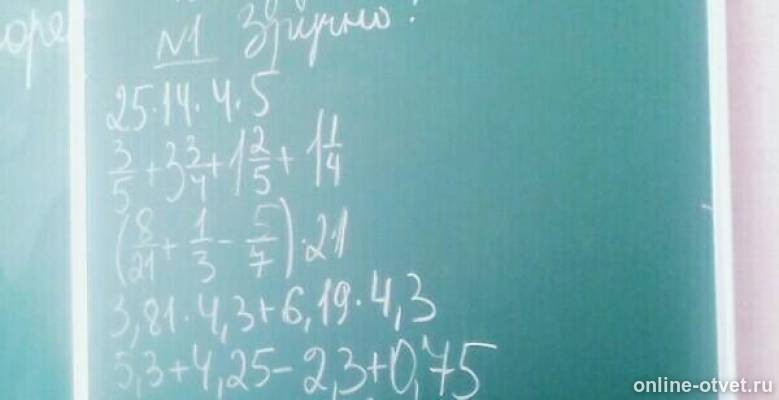 оре
№1 Зручно!
25·14·4·5
3/5 + 3 3/4 + 1 2/5 + 1 1/4
(8/21 + 1/3 - 5/7)·21
3,81·4,3+6,19·4,3
5,3+4,25-2,3+0,75
online-otvet.ru